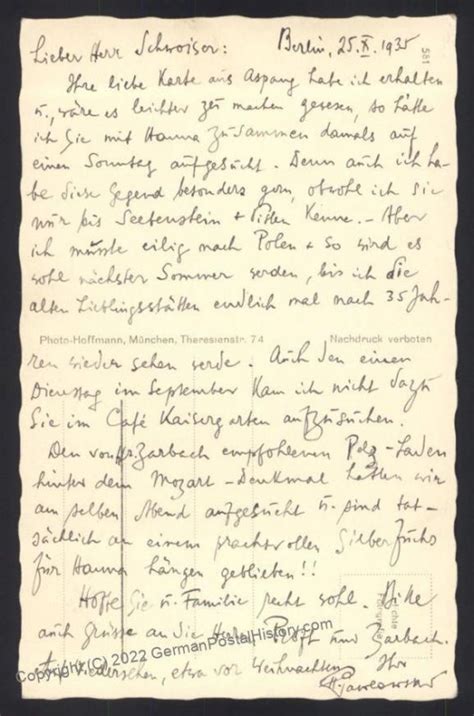 Lieber Herr Schwoiser: Berlin, 25.X.1935
581
Ihre liebe Karte aus Aspang habe ich erhalten
u., wäre es leichter zu machen gewesen, so hätte
ich Sie mit Hanna zusammen damals auf
einen Sonntag aufgesucht. Denn auch ich ha-
be diese Gegend besonders gern, obwohl ich sie
nur bis Seebenstein + Pitten kenne. – Aber
ich musste eilig nach Polen + so wird es
wohl nächster Sommer werden, bis ich die
alten Lieblingsstätten endlich mal nach 35 Jah-
Photo-Hoffmann, München, Theresienstr. 74 Nachdruck verboten
ren wieder sehen werde. Auch den einen
Dienstag im September kam ich nicht dazu
Sie im Café Kaisergarten aufzusuchen.
Den von Hr. Zarbach empfohlenen Pelz-Laden
hinter dem Mozart-Denkmal hatten wir
am selben Abend aufgesucht u. sind tat-
sächlich an einem prachtvollen Silberfuchs
für Hanna hängen geblieben!!
Hoffe Sie u. Familie recht wohl. Bitte
auch Grüsse an die Herren und Zarbach.
Auf Wiedersehen, etwa vor Weihnachten Ihr
Copyright (C) 2022 GermanPostalHistory.com